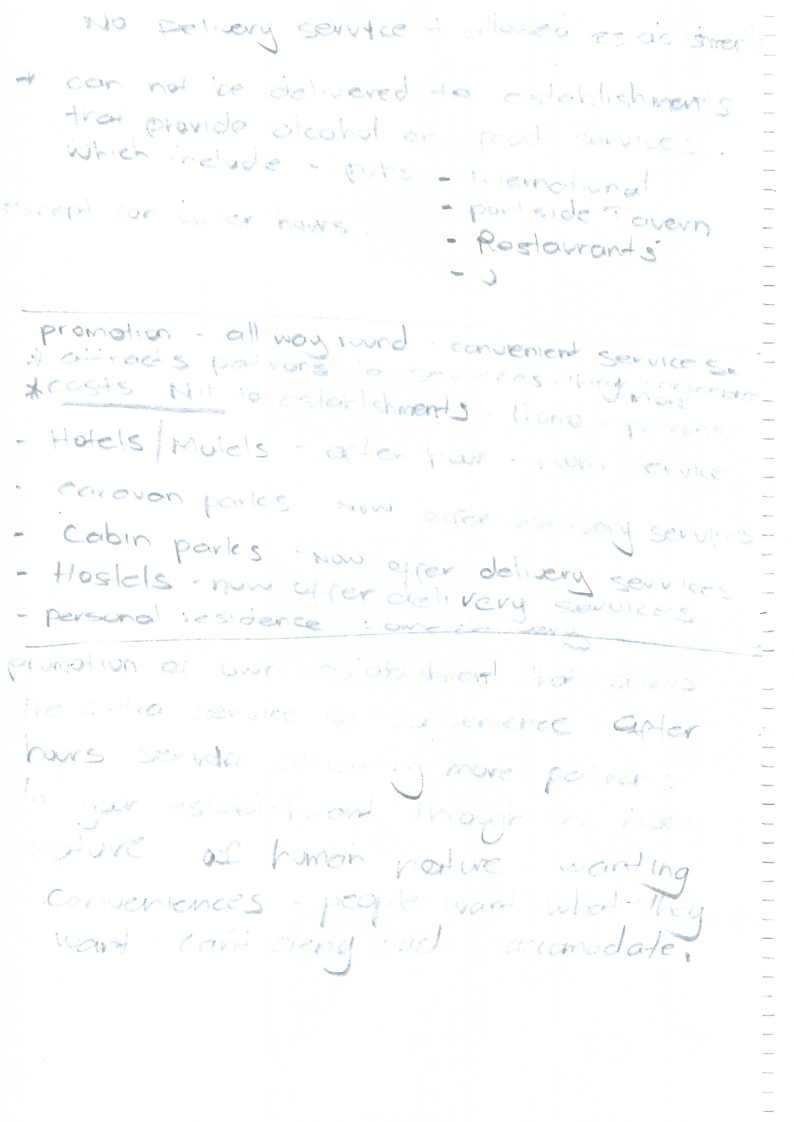 No Delivery service + allowed
+ can not be delivered to establishments
that provide alcohol or food services
which include - pubs - International
except for after hours - portside Tavern
- Restaurants
-
promotion - all way round - convenient services
attracts patrons to services
* costs Nil to establishments - more patrons
- Hotels/Motels - after hour - room service
- caravan parks now offer delivery services
- Cabin parks - now offer delivery services
- Hostels - now offer delivery services
- personal residence
promotion of own establishment that allows
the extra service of convenience after
hours service attracting more patrons
to your establishment through
nature of human nature wanting
conveniences - people want what they
want - can't deny accomadate.